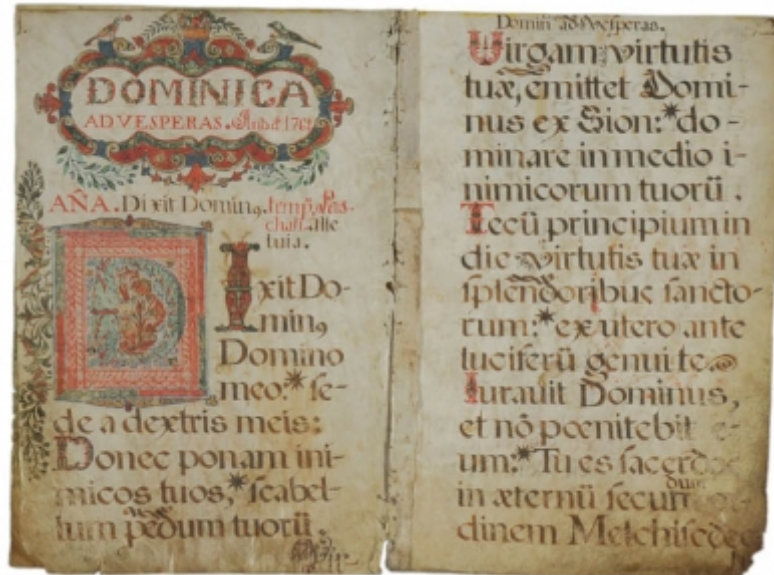 DOMINICA
AD VESPERAS.
AÑA. Dixit Dominꝯ. temp. Pas-
chali. alle
luia.
Dixit Do-
minꝯ
Domino
meo:* ſe-
de a dextris meis:
Donec ponam ini-
micos tuos,* ſcabel-
lum pedum tuorū.
Domin. ad Vesperas.
Virgam virtutis
tuæ, emittet Domi-
nus ex Sion:* do-
minare in medio i-
nimicorum tuorū.
Tecū principium in
die virtutis tuæ in
ſplendoribus ſancto-
rum:* ex utero ante
luciferū genui te.
Iurauit Dominus,
et nō pœnitebit e-
um:* Tu es ſacerdo-
in æternū ſecun
dum
dinem Melchiſedec